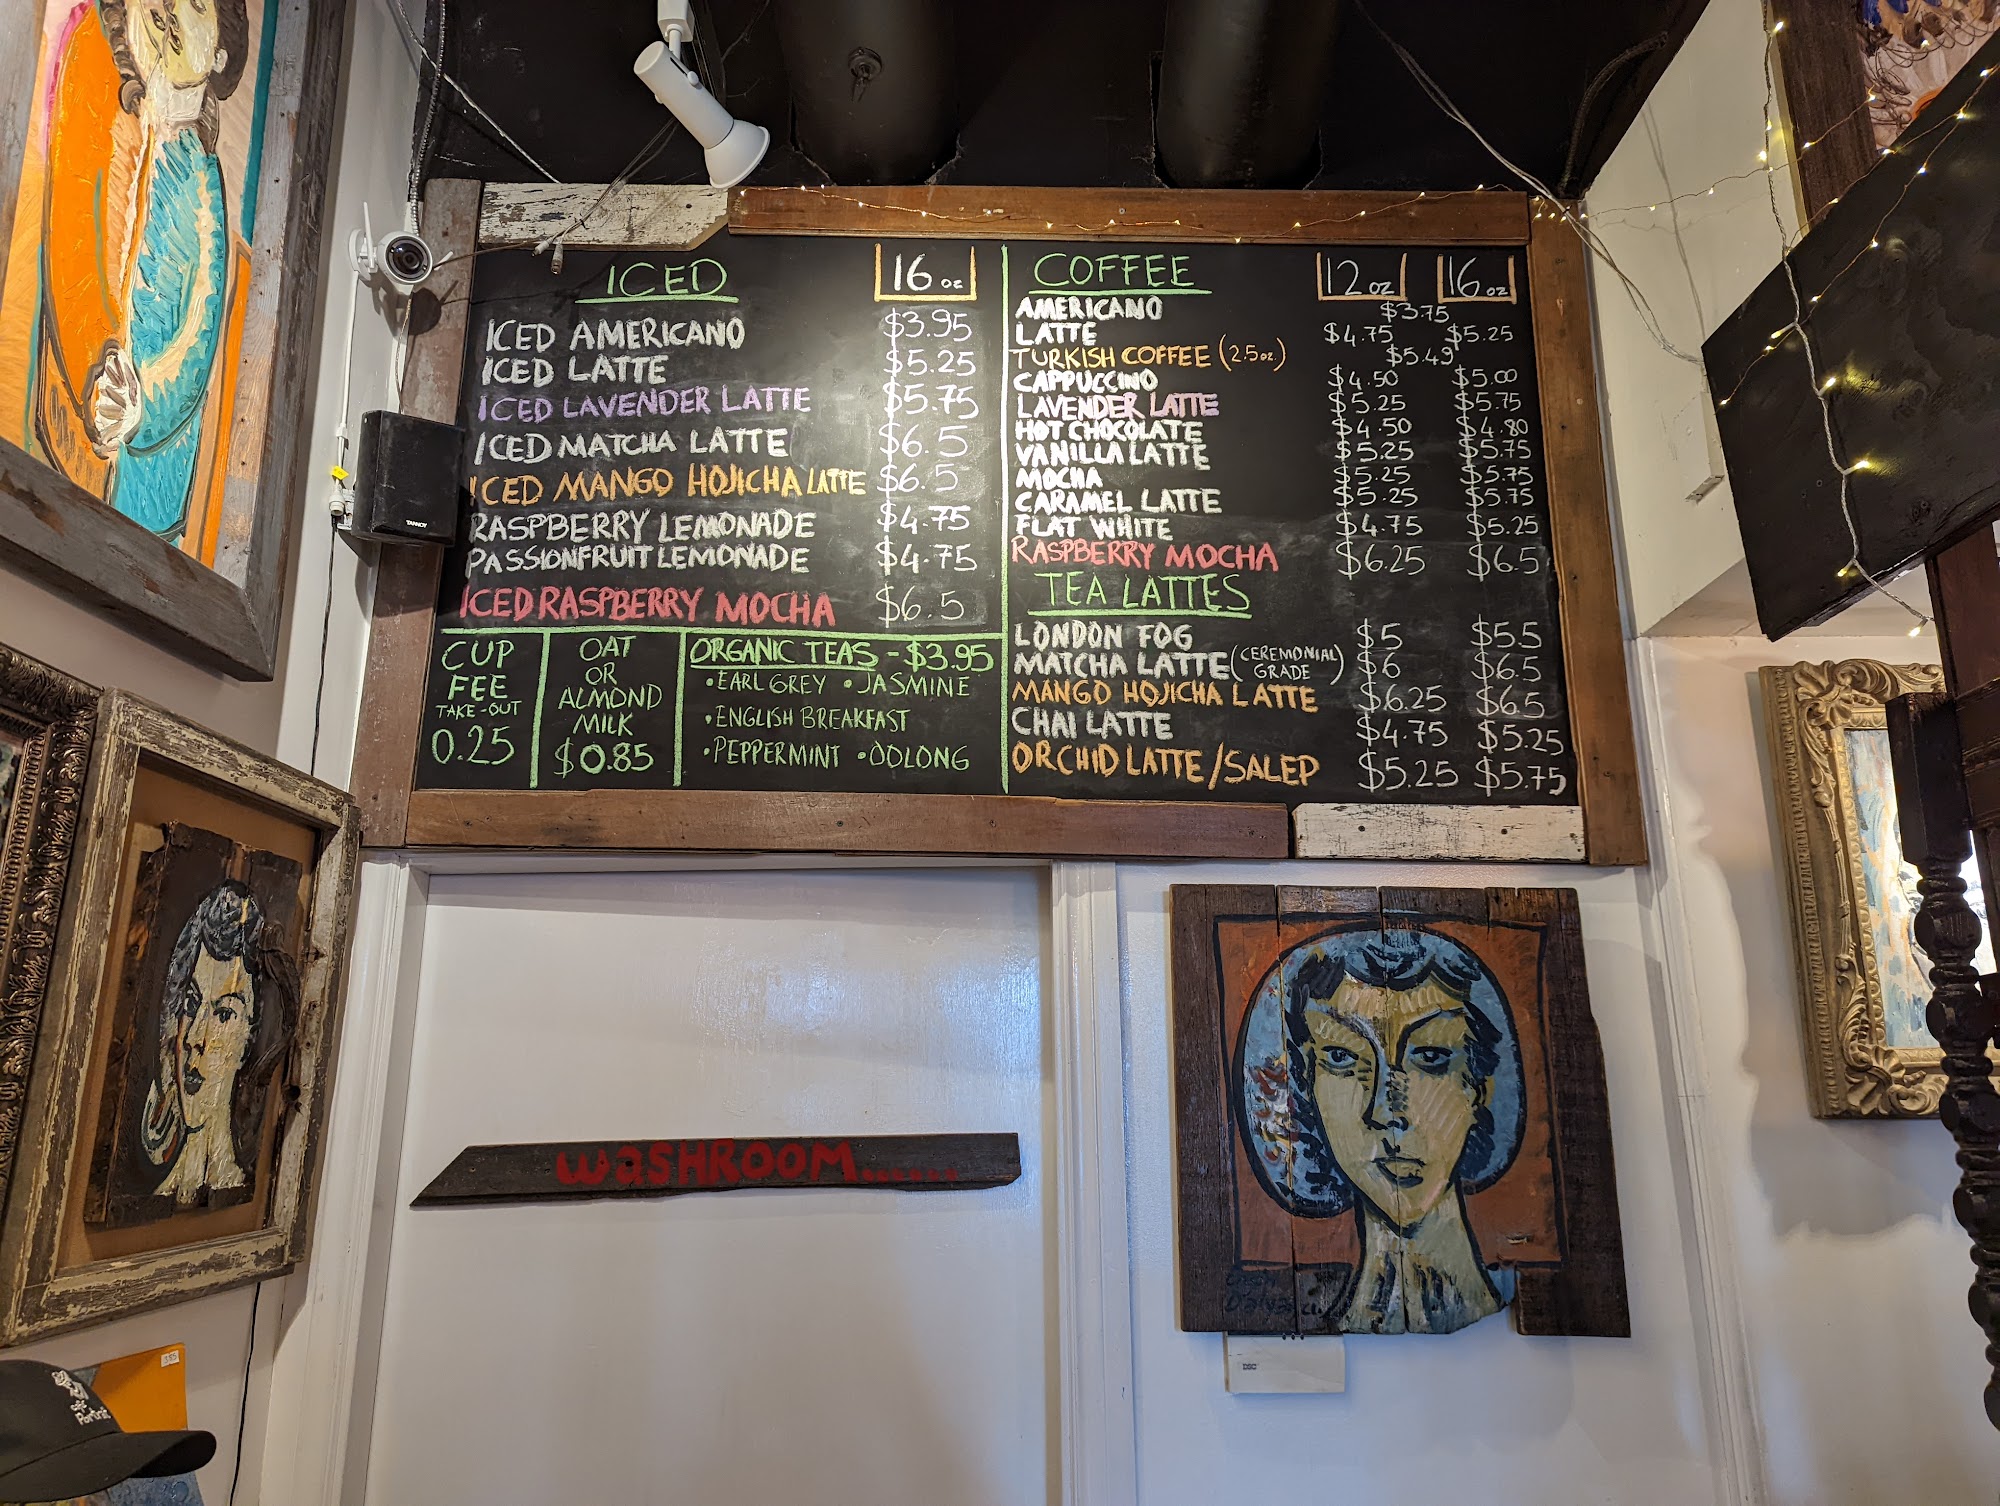 ICED 16 oz
ICED AMERICANO $3.95
ICED LATTE $5.25
ICED LAVENDER LATTE $5.75
ICED MATCHA LATTE $6.5
ICED MANGO HOJICHA LATTE $6.5
RASPBERRY LEMONADE $4.75
PASSIONFRUIT LEMONADE $4.75
ICED RASPBERRY MOCHA $6.5
CUP
FEE
TAKE-OUT
0.25
OAT
OR
ALMOND
MILK
$0.85
ORGANIC TEAS - $3.95
•EARL GREY •JASMINE
•ENGLISH BREAKFAST
•PEPPERMINT •OOLONG
COFFEE 12 oz 16 oz
AMERICANO $3.75
LATTE $4.75 $5.25
TURKISH COFFEE (2.5oz.) $5.49
CAPPUCCINO $4.50 $5.00
LAVENDER LATTE $5.25 $5.75
HOT CHOCOLATE $4.50 $4.80
VANILLA LATTE $5.25 $5.75
MOCHA $5.25 $5.75
CARAMEL LATTE $5.25 $5.75
FLAT WHITE $4.75 $5.25
RASPBERRY MOCHA $6.25 $6.5
TEA LATTES
LONDON FOG $5 $5.5
MATCHA LATTE (CEREMONIAL GRADE) $6 $6.5
MANGO HOJICHA LATTE $6.25 $6.5
CHAI LATTE $4.75 $5.25
ORCHID LATTE/SALEP $5.25 $5.75
TANNOY
waSHROOM......
DSC
385